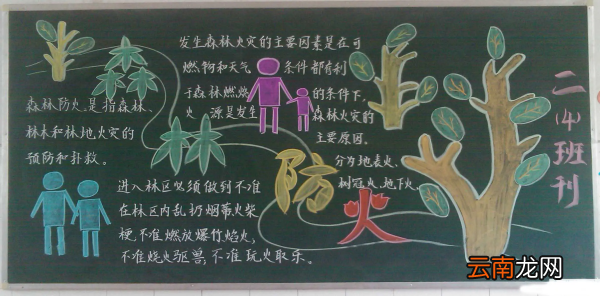 发生森林火灾的主要因素是在可
燃物和天气 条件都有利
于森林燃烧 的条件下，
火 源是发生 森林火灾的
主要原因。
森林防火，是指森林、
林木和林地火灾的
预防和扑救。
分为地表火、
树冠火、地下火。
防火
进入林区必须做到不准
在林区内乱扔烟蒂火柴
梗，不准燃放爆竹焰火，
不准烧火驱兽，不准玩火取乐。
二（4）班刊
云南龙网